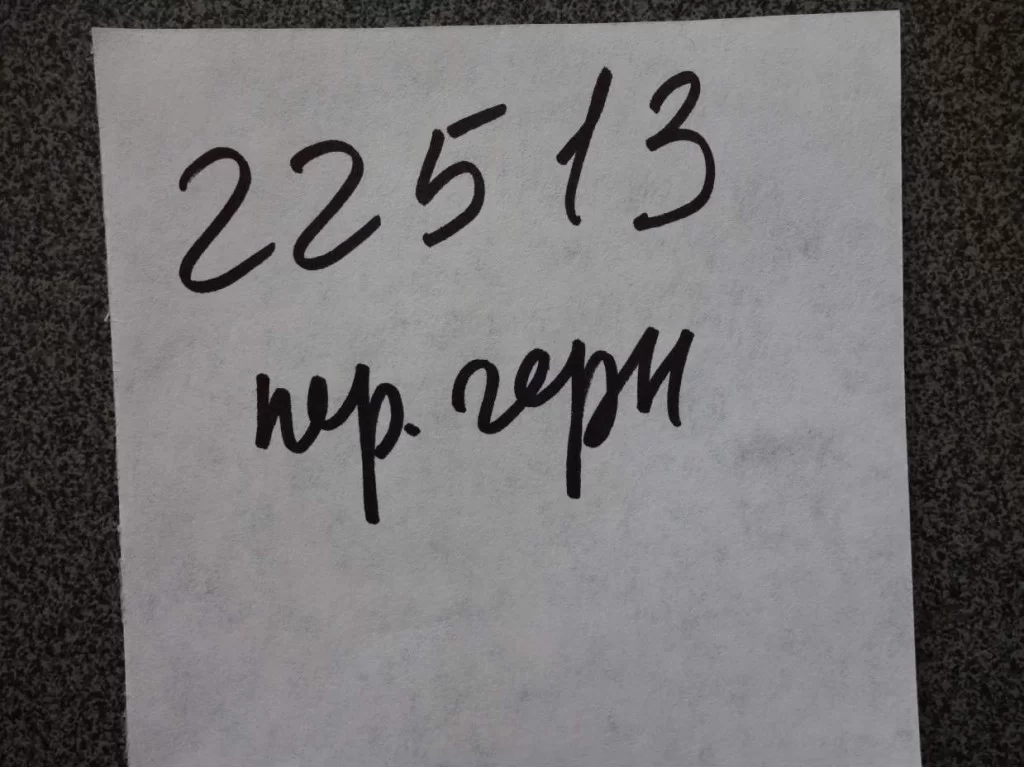 22513
пер. герм